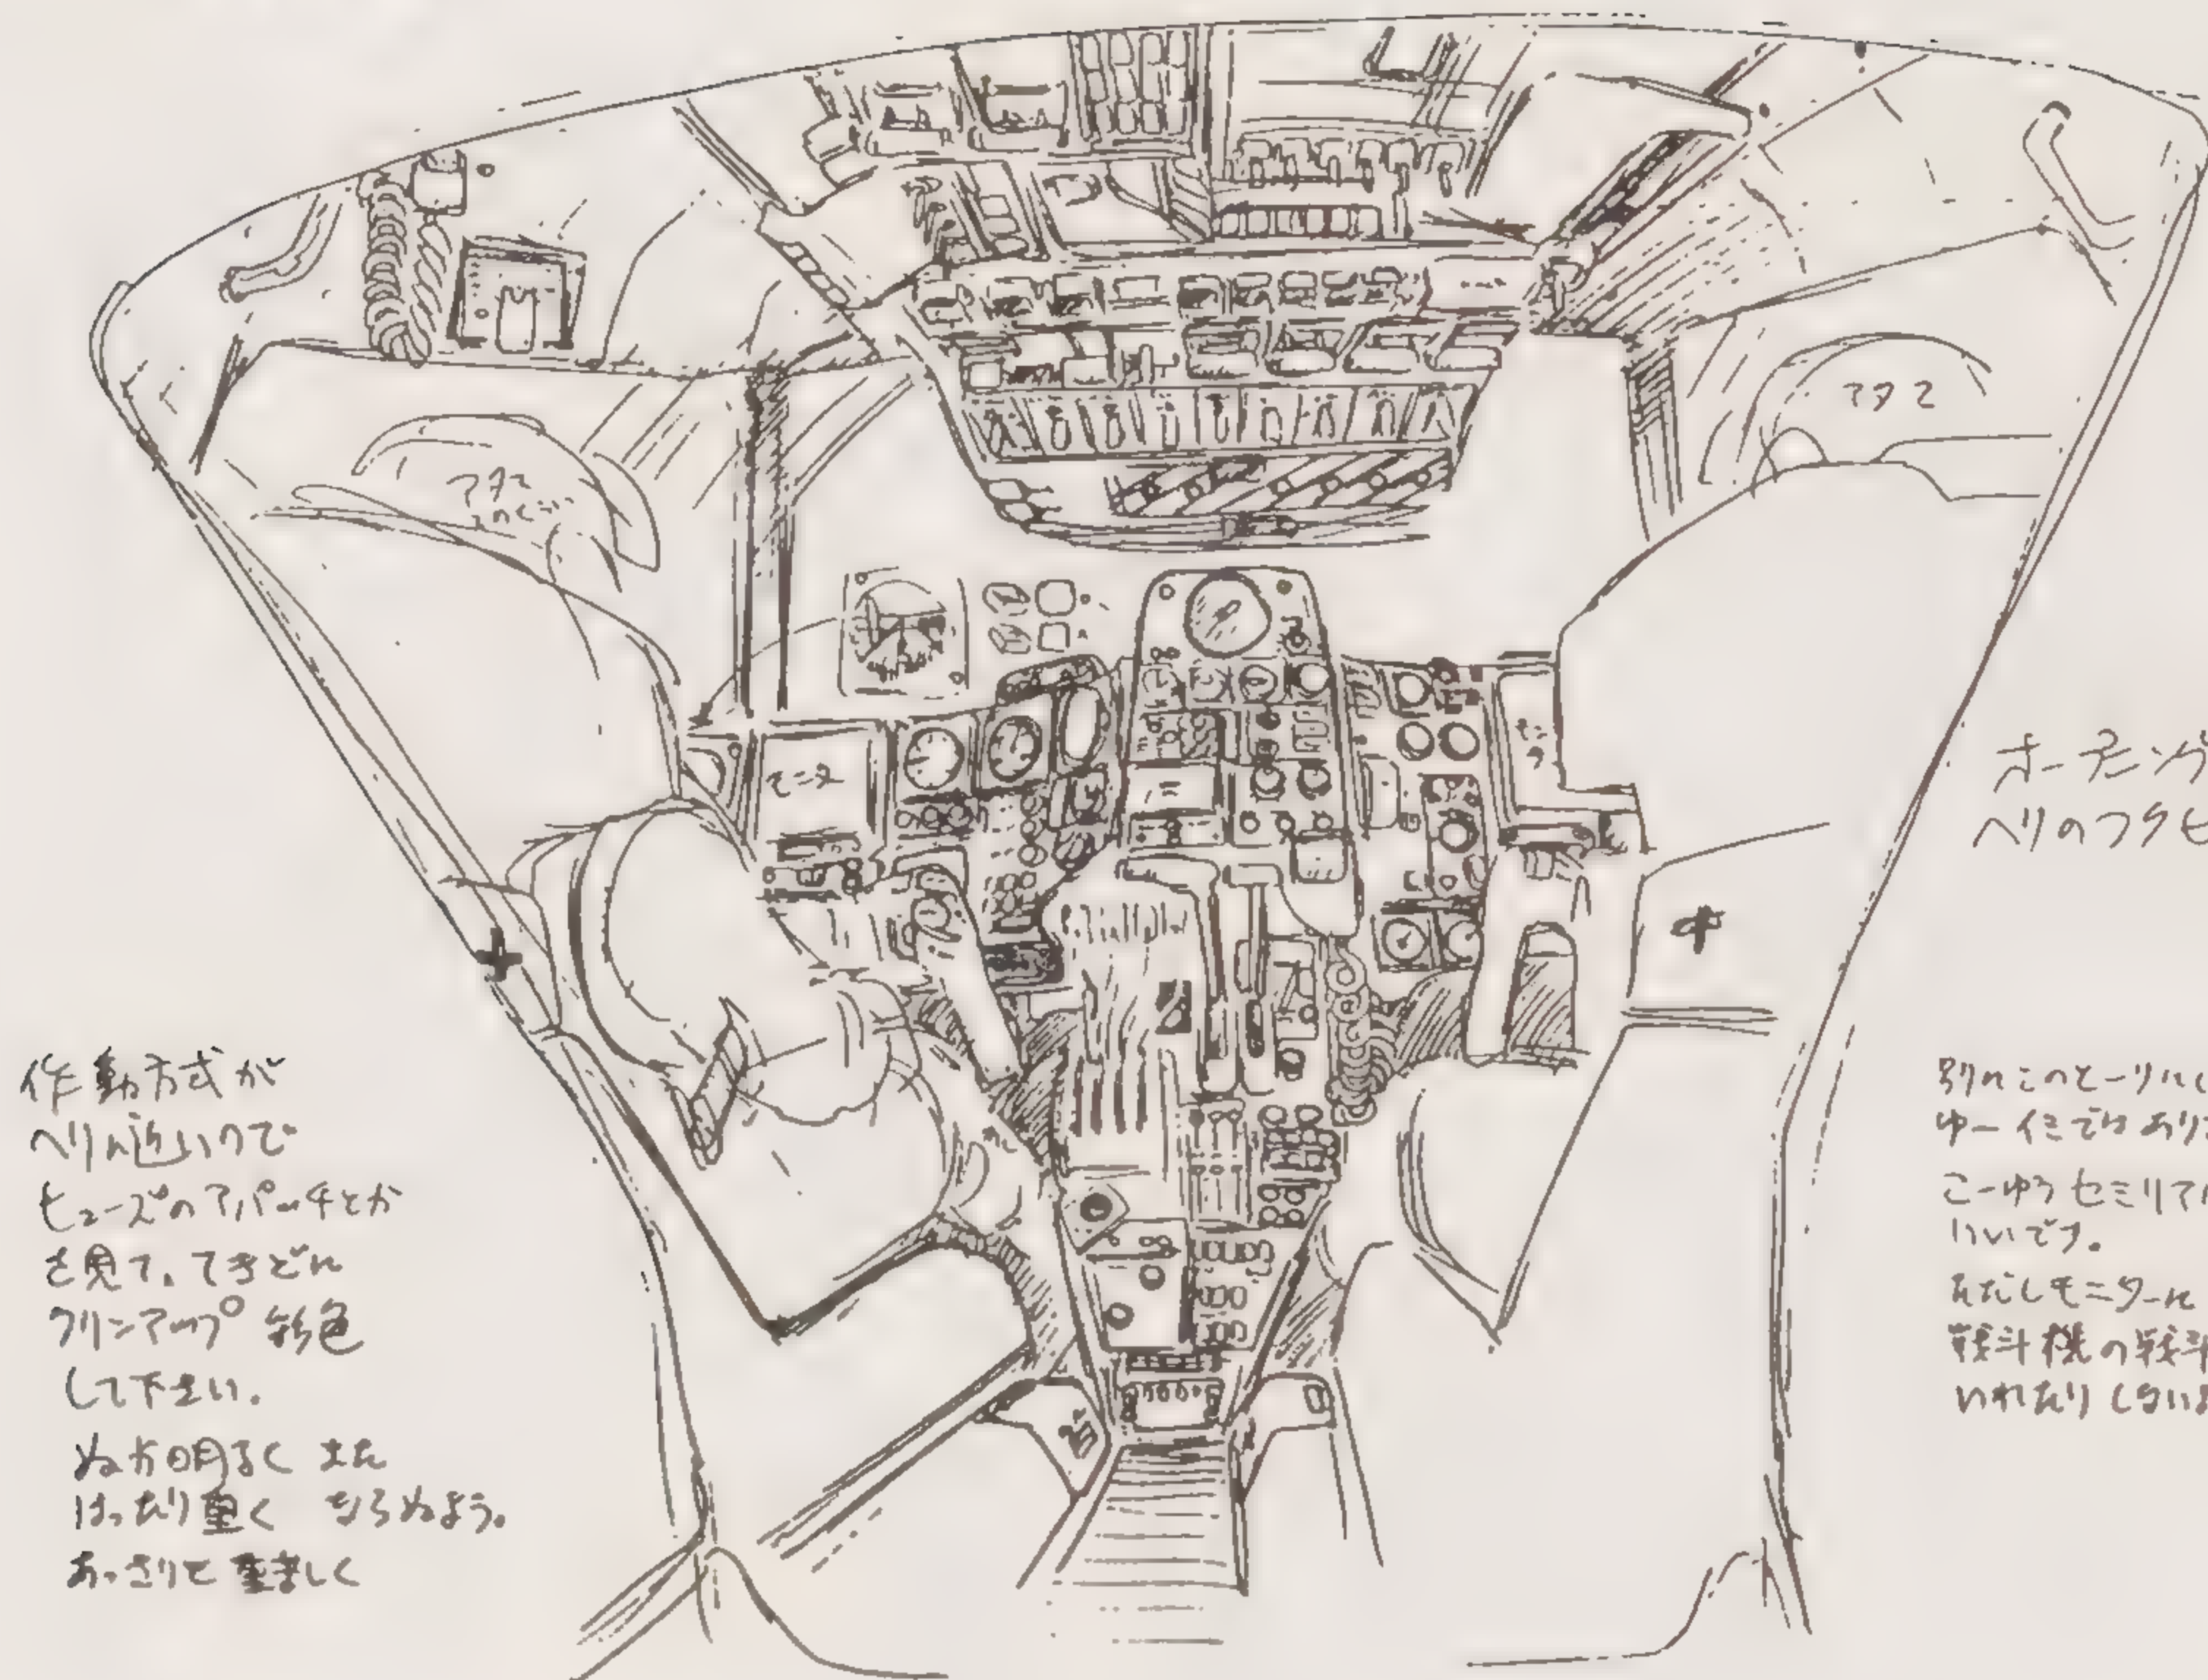 アタマ
アタマ
モニタ
モニタ
オープニング
ヘリのフタヒ
作動方式が
ヘリに近いので
ヒューズのアパッチとか
を見て、てきどに
クリンアップ彩色
して下さい。
ぬか明るく また
けったり重く ならぬよう。
あっさりと重ましく
別にこのとーりにし
ゆーイミではありま
こーゆうセミリアル
いいです。
ただしモニターに
戦斗機の戦斗
いれたりしないよ